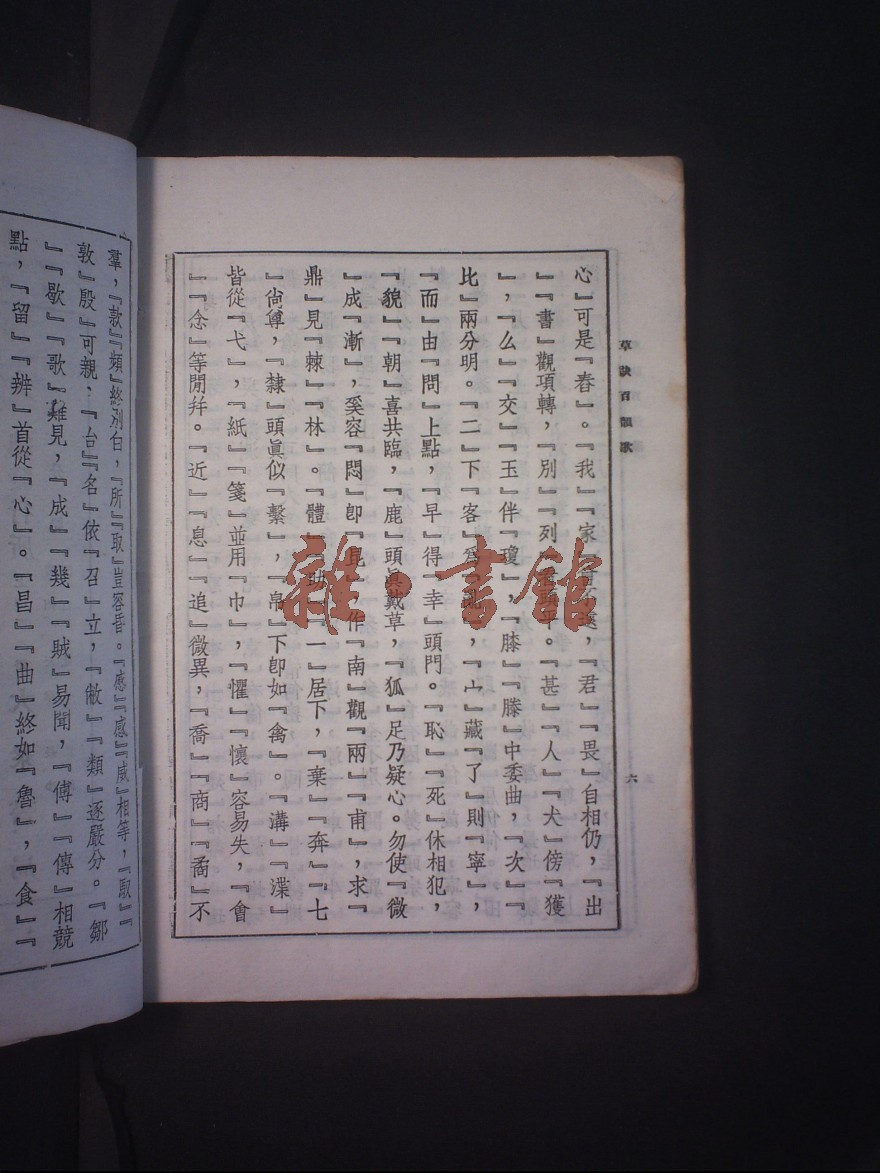 草訣百韻歌
六
心』可是『春』。『我』『家』『，『君』『畏』自相仍，『出
』『書』觀項轉，『別』『列』。『甚』『人』『犬』傍『獲
』，『么』『交』『玉』伴『瓊』，『膝』『滕』中委曲，『次』『
比』兩分明。『二』下『客』為，『宀』藏『了』則『寧』，
『而』由『問』上點，『早』得『幸』頭門。『恥』『死』休相犯，
『貌』『朝』喜共臨，『鹿』頭眞戴草，『狐』足乃疑心。勿使『微
』成『漸』，奚容『悶』卽『昆』，作『南』觀『兩』『甫』，求『
鼎』見『棘』『林』。『體』『助』『一』居下，『棄』『奔』『七
』尙尊，『隸』頭眞似『繫』，『帛』下卽如『禽』。『溝』『渫』
皆從『弋』，『紙』『箋』並用『巾』，『懼』『懷』容易失，『會
』『念』等閒幷。『近』『息』『追』微異，『喬』『商』『矞』不
羣，『款』『頻』終別白，『所』『取』豈容昏。『感』『感』『威』相等，『馭』『
敦』『殷』可親，『台』『名』依『召』立，『敝』『類』逐嚴分。『鄒
』『歇』『歌』難見，『成』『幾』『賊』易聞，『傅』『傳』相競
點，『留』『辨』首從『心』。『昌』『曲』終如『魯』，『食』『
雜·書館